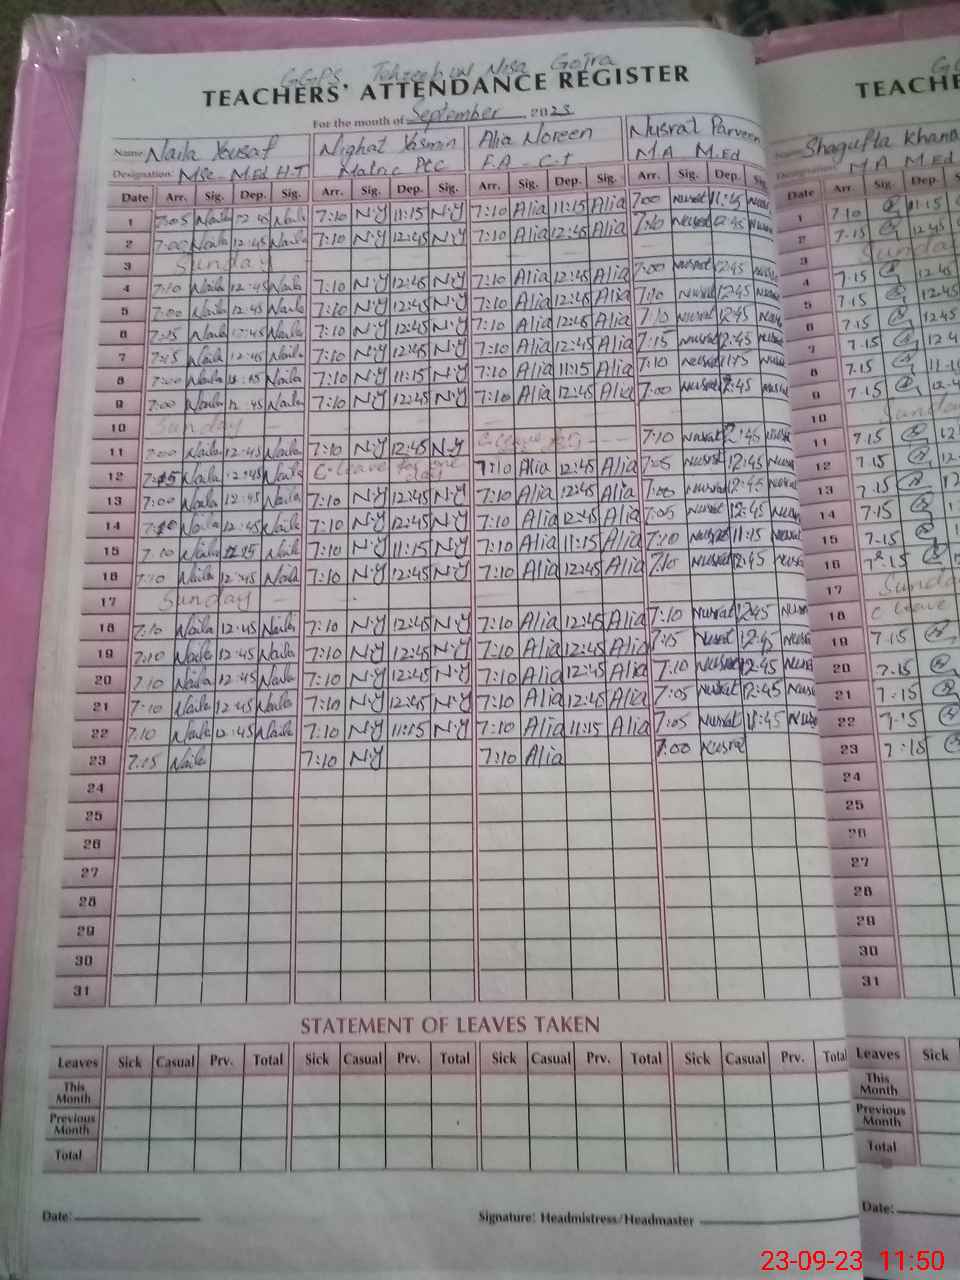 GGPS Tehzeeb un Nisa Gojra
TEACHERS' ATTENDANCE REGISTER TEACHE
For the month of September 2023
Name Naila Yousaf Nighat Yasmin Alia Noreen Nusrat Parveen Shagufta Khana
Designation MSc M.Ed H.T Matric PTC F.A - C.t M.A M.Ed M A M.Ed
Date Arr. Sig. Dep. Sig. Arr. Sig. Dep. Sig. Arr. Sig. Dep. Sig. Arr. Sig. Dep. Sig. Date Arr. Sig. Dep
1 7:05 Naila 12:45 Naila 7:10 N.Y 11:15 N.Y 7:10 Alia 11:15 Alia 7:00 Nusrat 11:15 1 7:10
2 7:00 Naila 12:45 Naila 7:10 N.Y 12:45 N.Y 7:10 Alia 12:45 Alia Nusrat 12:45 2 7:15 12.45
3 Sunday 3 Sunda
4 7:10 Naila 12:45 Naila 7:10 N.Y 12:45 N.Y 7:10 Alia 12:45 Alia 7:00 Nusrat 12:45 4 7:15 12.45
5 7:00 Naila 12:45 Naila 7:10 N.Y 12:45 N.Y 7:10 Alia 12:45 Alia 7:10 Nusrat 12:45 5 7.15 12.45
6 7:15 Naila 12:45 Naila 7:10 N.Y 12:45 N.Y 7:10 Alia 12:45 Alia 7:10 Nusrat 12:45 6 7.15 12.45
7 7:15 Naila 12:45 Naila 7:10 N.Y 12:45 N.Y 7:10 Alia 12:45 Alia 7:15 Nusrat 12:45 7 7.15 12.4
8 7:00 Naila 11:15 Naila 7:10 N.Y 11:15 N.Y 7:10 Alia 11:15 Alia 7:10 Nusrat 11:15 8 7.15
9 7:00 Naila 12:45 Naila 7:10 N.Y 12:45 N.Y 7:10 Alia 12:45 Alia 7:00 Nusrat 12:45 9 7.15
10 Sunday 10 Sunda
11 7:00 Naila 12:45 Naila 7:10 N.Y 12:45 N.Y C-leave 7:10 Nusrat 12:45 11 7.15 12
12 Naila 12:45 Naila C-leave for one day 7:10 Alia 12:45 Alia 7:05 Nusrat 12:45 12 7.15
13 7:00 Naila 12:45 Naila 7:10 N.Y 12:45 N.Y 7:10 Alia 12:45 Alia 7:00 Nusrat 12:45 13 7.15
14 Naila 12:45 Naila 7:10 N.Y 12:45 N.Y 7:10 Alia 12:45 Alia 7:05 Nusrat 12:45 14 7.15
15 7:10 Naila Naila 7:10 N.Y 11:15 N.Y 7:10 Alia 11:15 Alia 7:10 Nusrat 11:15 15 7.15
16 7:10 Naila 12:45 Naila 7:10 N.Y 12:45 N.Y 7:10 Alia 12:45 Alia 7:10 Nusrat 12:45 16 7.15
17 Sunday 17 Sunda
18 7:10 Naila 12:45 Naila 7:10 N.Y 12:45 N.Y 7:10 Alia 12:45 Alia 7:10 Nusrat 12:45 18 C leave
19 7:10 Naila 12:45 Naila 7:10 N.Y 12:45 N.Y 7:10 Alia 12:45 Alia 7:15 Nusrat 12:45 19 7.15
20 7:10 Naila 12:45 Naila 7:10 N.Y 12:45 N.Y 7:10 Alia 12:45 Alia 7:10 Nusrat 12:45 20 7.15
21 7:10 Naila 12:45 Naila 7:10 N.Y 12:45 N.Y 7:10 Alia 12:45 Alia 7:05 Nusrat 12:45 21 7:15
22 7:10 Naila 12:45 Naila 7:10 N.Y 11:15 N.Y 7:10 Alia 11:15 Alia 7:05 Nusrat 22 7.15
23 7:15 Naila 7:10 N.Y 7:10 Alia 7:00 Nusrat 23 7:15
24 24
25 25
26 26
27 27
28 28
29 29
30 30
31 31
STATEMENT OF LEAVES TAKEN
Leaves Sick Casual Prv. Total Sick Casual Prv. Total Sick Casual Prv. Total Sick Casual Prv. Total Leaves Sick
This Month This Month
Previous Month Previous Month
Total Total
Date: Signature: Headmistress/Headmaster Date:
23-09-23 11:50